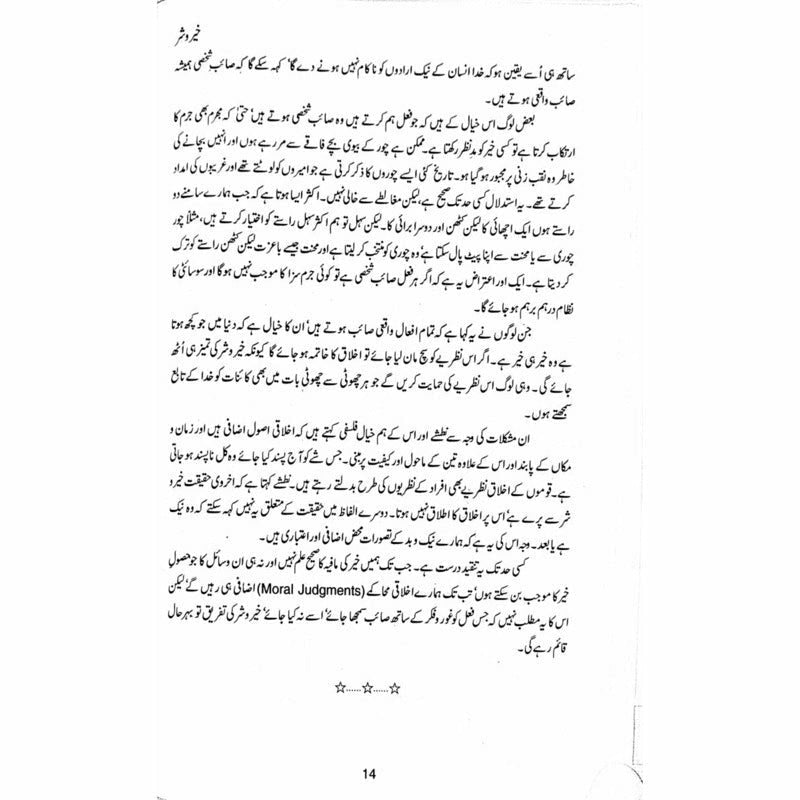 خیر و شر
ساتھ ہی اُسے یقین ہو کہ خدا انسان کے نیک ارادوں کو ناکام نہیں ہونے دے گا‘ کہہ سکے گا کہ صائب شخصی ہمیشہ
صائب واقعی ہوتے ہیں۔
بعض لوگ اس خیال کے ہیں کہ جو فعل ہم کرتے ہیں وہ صائب شخصی ہوتے ہیں‘ حتیٰ کہ مجرم بھی جرم کا
ارتکاب کرتا ہے تو کسی خیر کو مدِنظر رکھتا ہے۔ ممکن ہے چور کے بیوی بچے فاقے سے مر رہے ہوں اور انہیں بچانے کی
خاطر وہ نقب زنی پر مجبور ہو گیا ہو۔ تاریخ کئی ایسے چوروں کا ذکر کرتی ہے جو امیروں کو لوٹتے تھے اور غریبوں کی امداد
کرتے تھے۔ یہ استدلال کسی حد تک صحیح ہے، لیکن مغالطے سے خالی نہیں۔ اکثر ایسا ہوتا ہے کہ جب ہمارے سامنے دو
راستے ہوں ایک اچھائی کا لیکن کٹھن اور دوسرا برائی کا۔ لیکن سہل تو ہم اکثر سہل راستے کو اختیار کرتے ہیں، مثلاً چور
چوری سے یا محنت سے اپنا پیٹ پال سکتا ہے‘ وہ چوری کو منتخب کر لیتا ہے اور محنت جیسے باعزت لیکن کٹھن راستے کو ترک
کر دیتا ہے۔ ایک اور اعتراض یہ ہے کہ اگر ہر فعل صائب شخصی ہے تو کوئی جرم سزا کا موجب نہیں ہو گا اور سوسائٹی کا
نظام درہم برہم ہو جائے گا۔
جن لوگوں نے یہ کہا ہے کہ تمام افعال واقعی صائب ہوتے ہیں‘ ان کا خیال ہے کہ دنیا میں جو کچھ ہوتا
ہے وہ خیر ہی خیر ہے۔ اگر اس نظریے کو سچ مان لیا جائے تو اخلاق کا خاتمہ ہو جائے گا کیونکہ خیر و شر کی تمیز ہی اُٹھ
جائے گی۔ وہی لوگ اس نظریے کی حمایت کریں گے جو ہر چھوٹی سے چھوٹی بات میں بھی کائنات کو خدا کے تابع
سمجھتے ہوں۔
ان مشکلات کی وجہ سے نطشے اور اس کے ہم خیال فلسفی کہتے ہیں کہ اخلاقی اصول اضافی ہیں اور زمان و
مکاں کے پابند اور اس کے علاوہ تین کے ماحول اور کیفیت پر مبنی۔ جس شے کو آج پسند کیا جائے وہ کل ناپسند ہو جاتی
ہے۔ قوموں کے اخلاق نظریے بھی افراد کے نظریوں کی طرح بدلتے رہتے ہیں۔ نطشے کہتا ہے کہ اخروی حقیقت خیر و
شر سے پرے ہے‘ اس پر اخلاق کا اطلاق نہیں ہوتا۔ دوسرے الفاظ میں حقیقت کے متعلق یہ نہیں کہہ سکتے کہ وہ نیک
ہے یا بد۔ وجہ اس کی یہ ہے کہ ہمارے نیک و بد کے تصورات محض اضافی اور اعتباری ہیں۔
کسی حد تک یہ تنقید درست ہے۔ جب تک ہمیں خیر کی مافیہ کا صحیح علم نہیں اور نہ ہی ان وسائل کا جو حصولِ
خیر کا موجب بن سکتے ہوں‘ تب تک ہمارے اخلاقی محاکمے (Moral Judgments) اضافی ہی رہیں گے‘ لیکن
اس کا یہ مطلب نہیں کہ جس فعل کو غور و فکر کے ساتھ صائب سمجھا جائے‘ اسے نہ کیا جائے‘ خیر و شر کی تفریق تو بہرحال
قائم رہے گی۔
☆......☆......☆
14